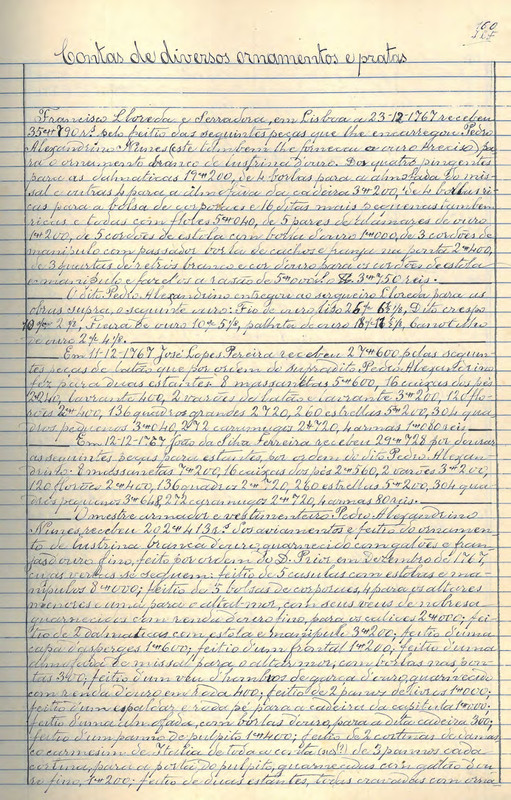 100
Contas de diversos ornamentos e pratas
Francisco Lloreda e Serradora, em Lisboa a 23-12-1767 recebeu
35$790 rs. pelo feitio das seguintes peças que lhe encarregou Pedro
Alexandrino Nunes (este também lhe forneceu o ouro preciso) pa-
ra o ornamento branco de lustrina d'ouro. Dos quatro pingentes
para as dalmaticas 19$200, de 4 borlas para a almofada do mis-
sal e outras 4 para a almofada da cadeira 3$200, de 4 borlas ri-
cas para a bolsa de corporaes e 16 ditas mais pequenas tambem
ricas e todas com flores 5$040, de 5 pares de alamares de ouro
1$200, de 5 cordões de estola com borla d'ouro 1$000, de 3 cordões de
manipulo com passador borla de cachos e franja na ponta 2$400,
de 3 quartas de retrós branco e cor d'ouro para os cordões de estola
e manipulo e farelos a rasão de 5$000 3$750 reis.
O dito Pedro Alexandrino entregou ao sergueiro Lloreda para as
obras supra, o seguinte ouro: Fio de ouro lizo Dito crespo
Fieira de ouro palheta de ouro canotilho
de ouro
Em 11-12-1767 José Lopes Pereira recebeu 27$600 pelas seguin-
tes peças de latão que por ordem do supradito Pedro Alexandrino
fez para duas estantes: 8 massanetas 5$600, 16 caixas dos pés
lavrante 400, 2 varões de latão e lavrante 3$200, 120 flo-
rões 2$400, 136 quadros grandes 2$720, 260 estrellas 5$200, 304 qua-
dros pequenos 3$040, 272 caramujos 2$720, 4 armas 1$080 reis.
Em 12-12-1767 João da Silva Ferreira recebeu 29$728 por dourar
as seguintes peças para estantes, por ordem do dito Pedro Alexan-
drino: 8 massanetas 7$200, 16 caixas dos pés 2$560, 2 varões 3$200,
120 florões 2$400, 136 quadros 2$720, 260 estrellas 5$200, 304 qua-
dros pequenos 3$648, 272 caramujos 2$720, 4 armas 80 reis.
O mestre armador e vestimenteiro Pedro Alexandrino
Nunes, recebeu 202$413 rs. Dos aviamentos e feitio do ornamen-
to de lustrina branca d'ouro, guarnecido com galões e fran-
jas d'ouro fino, feito por ordem do D. Prior em Dezembro de 1767,
cujas verbas se seguem: feitio de 5 casulas com estolas e ma-
nipulos 8$000; feitio de 5 bolsas de corporaes, 4 para os altares
menores e uma para o altar-mor, com seus veus de nobresa
guarnecidos com renda d'ouro fino, para os calices 2$000; fei-
tio de 2 dalmaticas com estola e manipulo 3$200; feitio d'uma
capa d'asperges 1$600; feitio d'um frontal 1$200, feitio d'uma
almofada do missal para o altar mor, com borlas nas pon-
tas 300; feitio d'um veu d'hombros de garça d'ouro, guarnecido
com renda d'ouro em roda 400; feitio de 2 panos de livros 1$000;
feitio d'um espaldar e roda pé para a cadeira da capitula 1$000;
feitio d'uma almofada, com borlas d'ouro, para a dita cadeira 300;
feitio d'um panno de pulpito 1$400; feitio de 2 cortinas de damas-
co carmesim de Italia de toda a conta (sic?) de 3 pannos cada
cortina, para a porta do pulpito, guarnecidas com galão d'ou-
ro fino, 1$200; feitio de duas estantes, todas cravadas com orna-